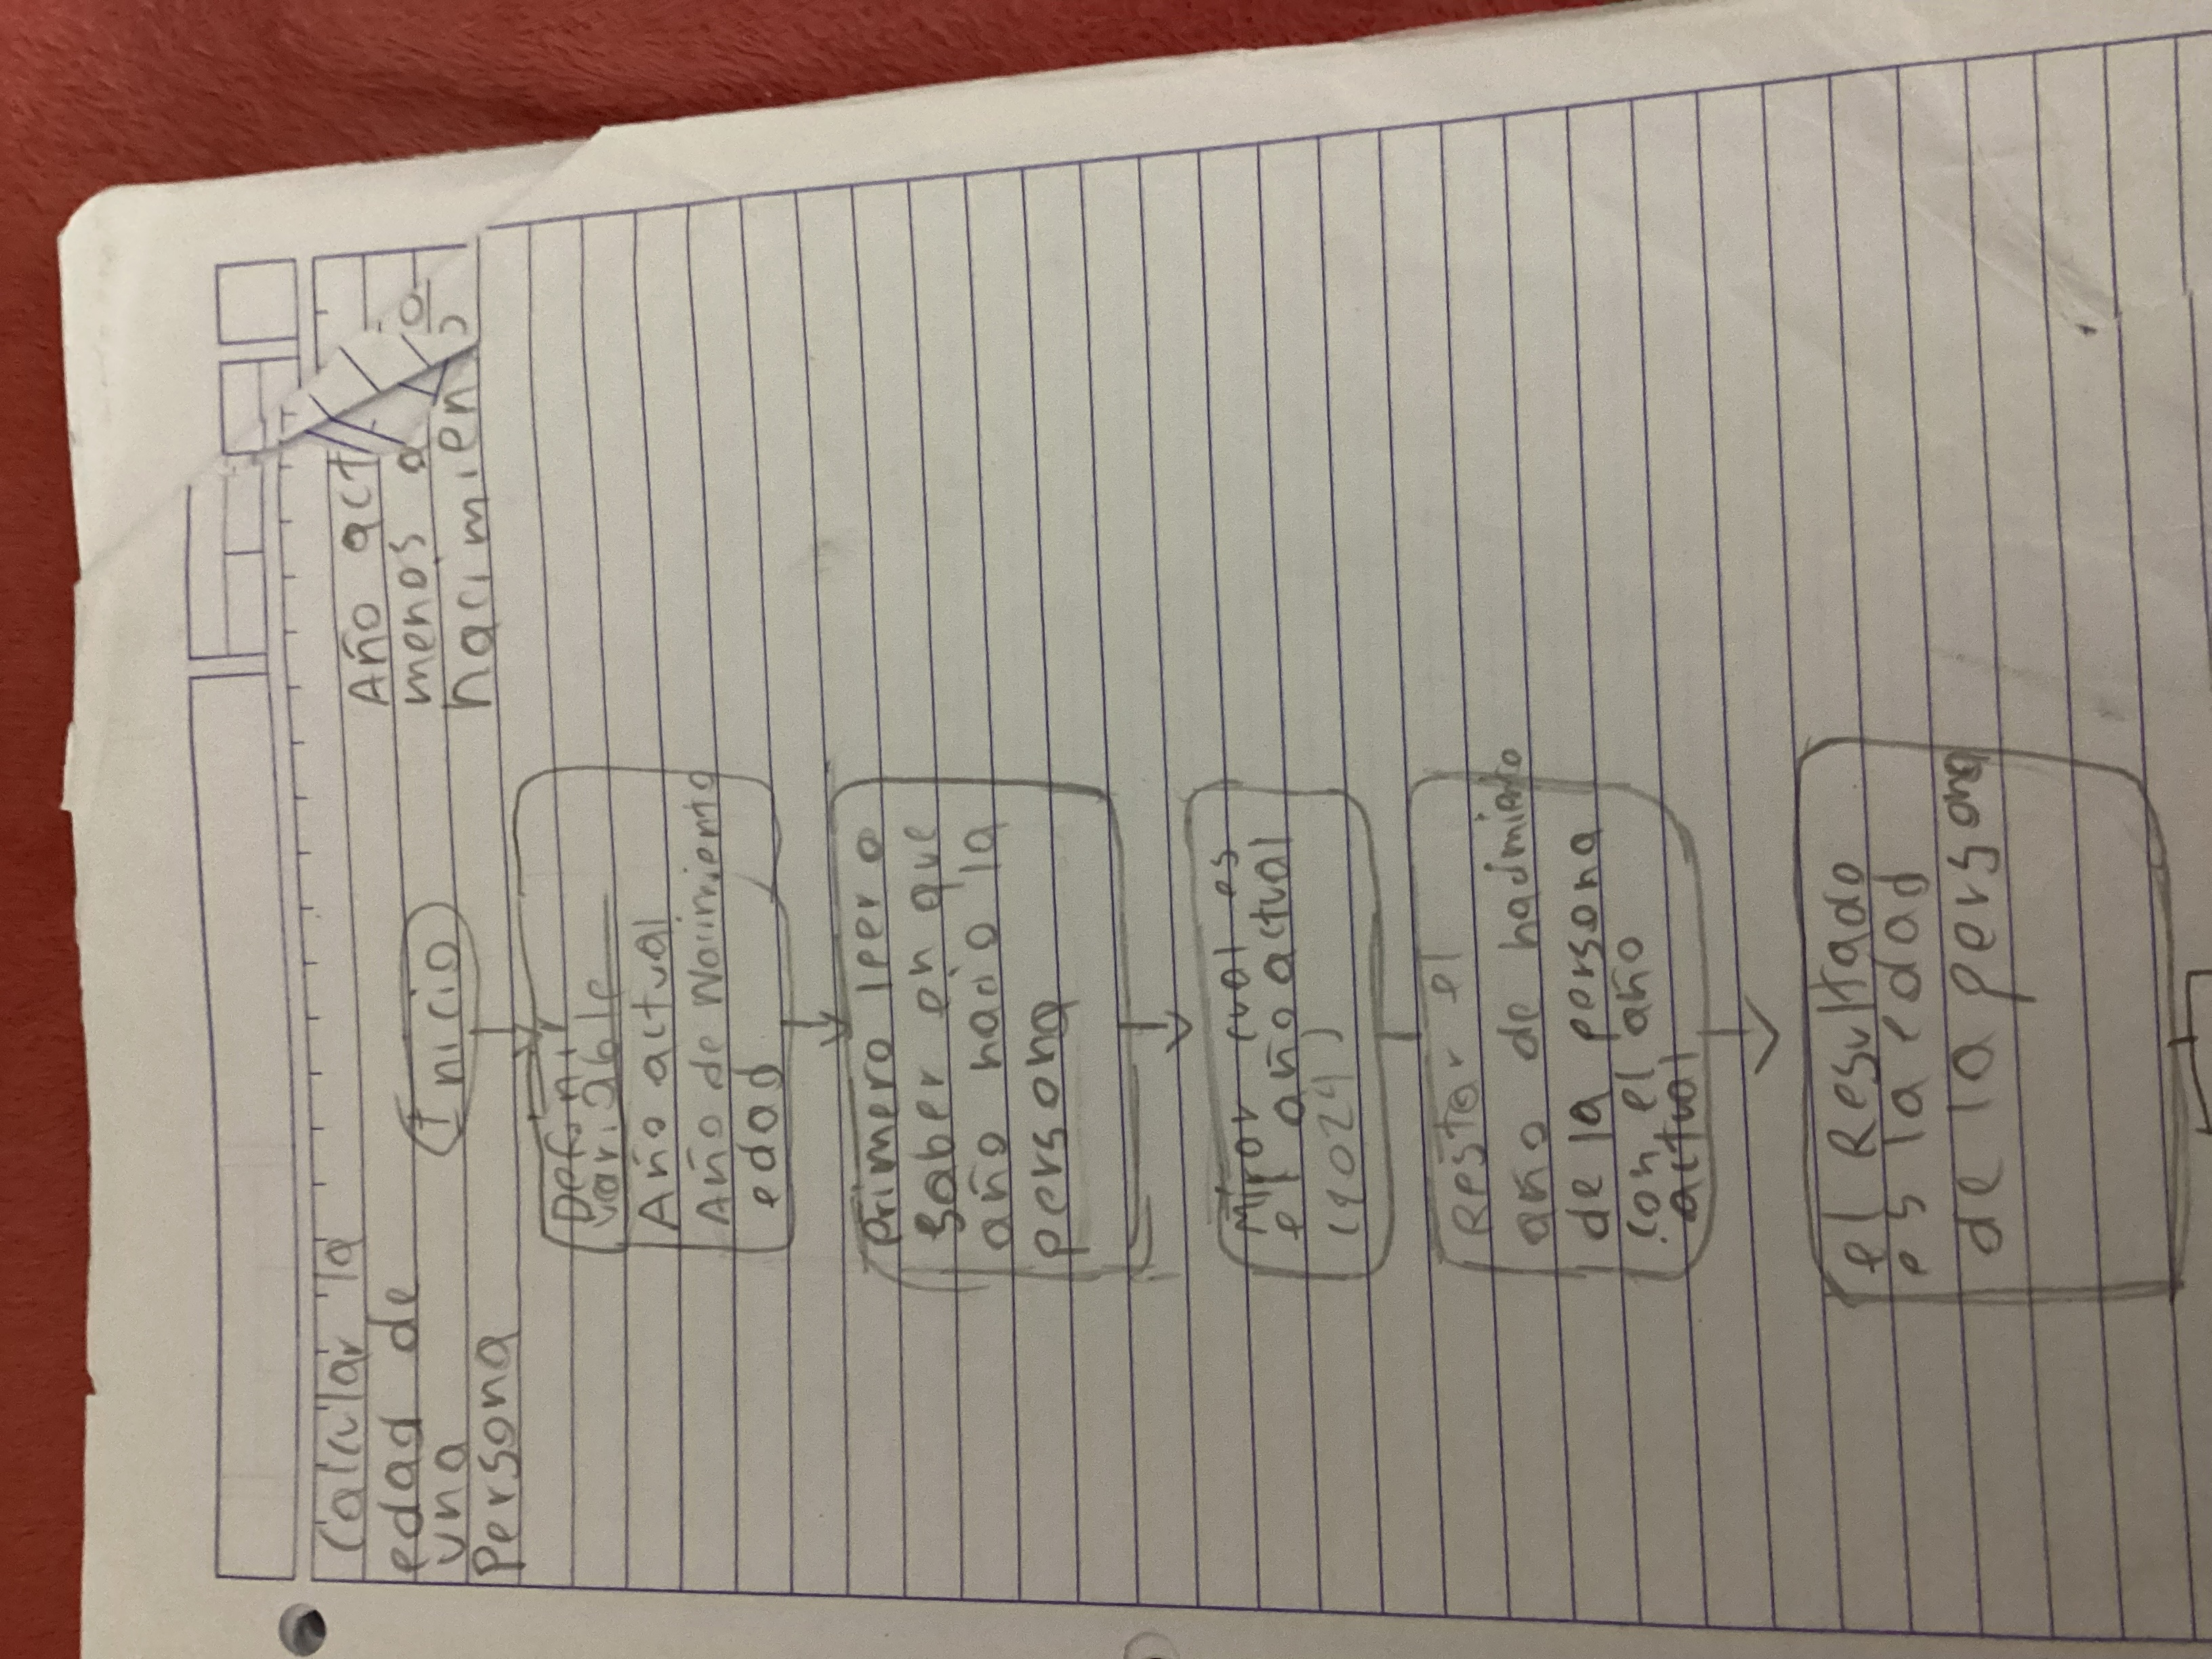 Calcular la
edad de
una
Persona
Año act
menos a
nacimien
Inicio
Defini
variable
Año actual
Año de Nacimiento
edad
Primero leer o
saber en que
año nacio la
persona
Mirar cual es
el año actual
Restar el
año de nacimiento
de la persona
con el año
actual
el Resultado
es la edad
de la persona